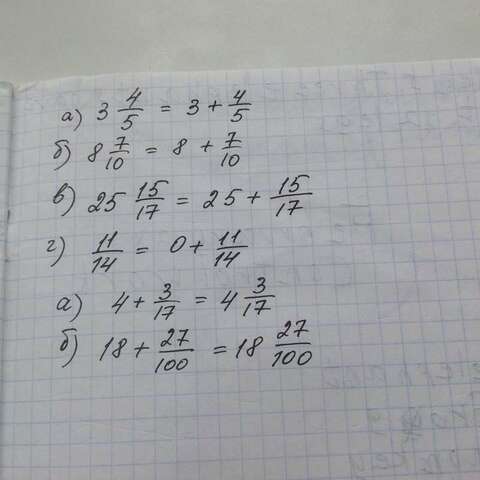 а) 3 4/5 = 3 + 4/5
б) 8 7/10 = 8 + 7/10
в) 25 15/17 = 25 + 15/17
г) 11/14 = 0 + 11/14
а) 4 + 3/17 = 4 3/17
б) 18 + 27/100 = 18 27/100